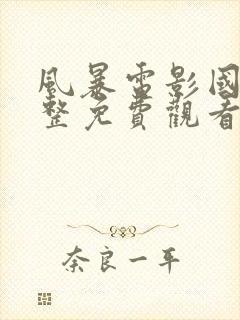 風暴電影國
整免費觀看
奈良一平